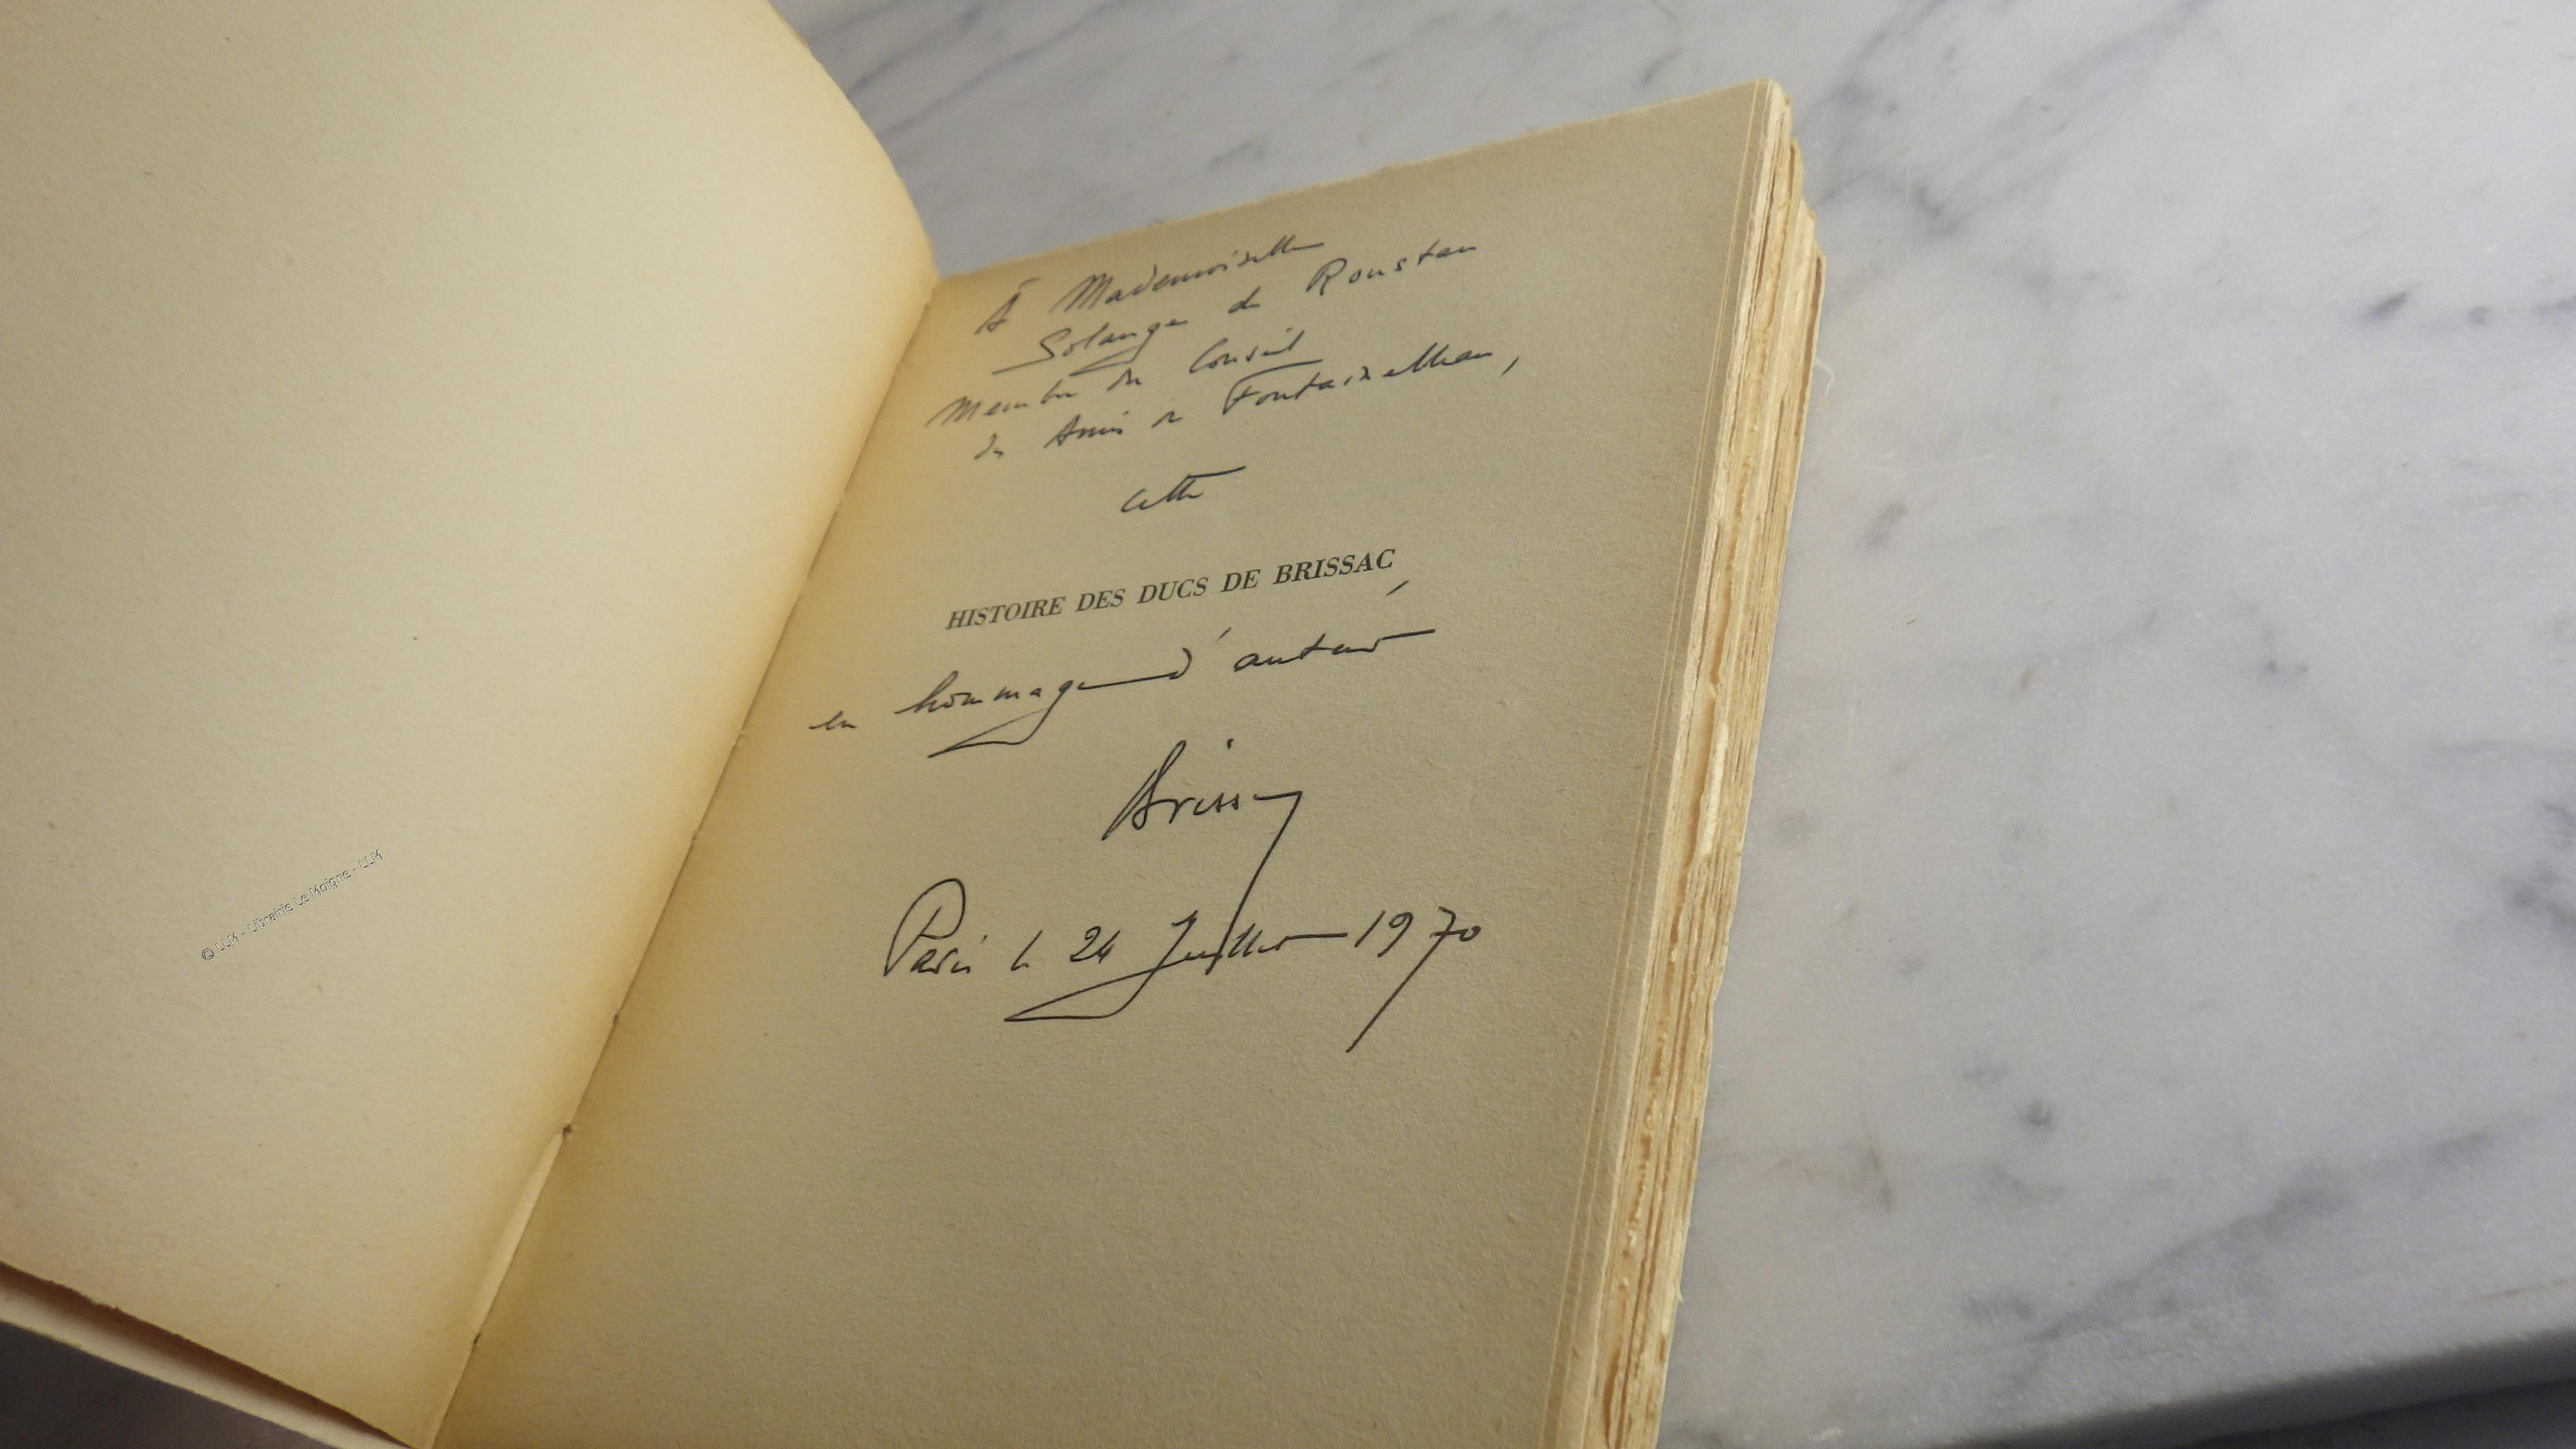 À Mademoiselle
Solange de Roustan
Membre du Conseil
des Amis de Fontainebleau,
cette
HISTOIRE DES DUCS DE BRISSAC
en hommage d'auteur
Brissac
Paris le 24 Juillet 1970
© LLM - Librairie Le Moigne - LLM